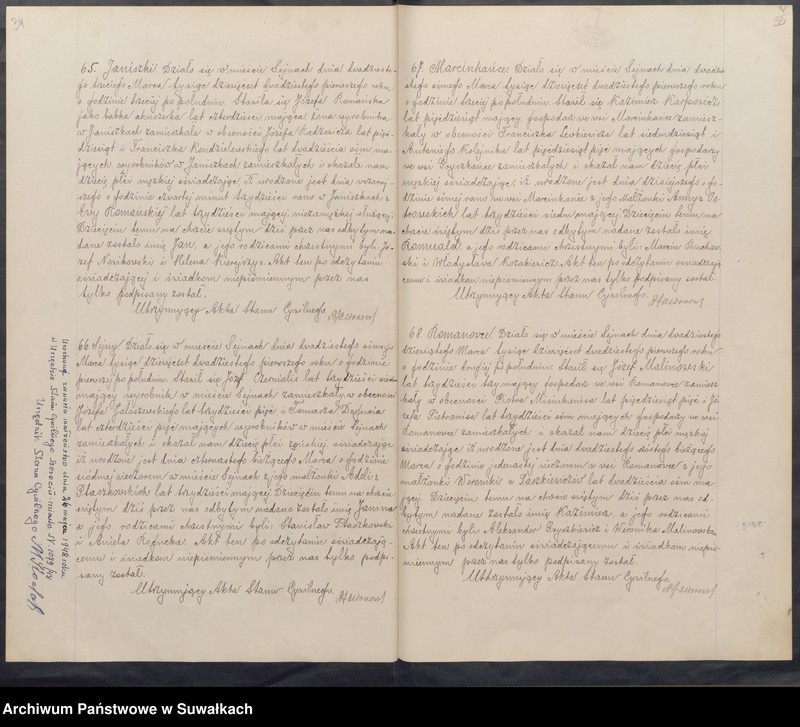 34
65. Janiszki. Działo się w mieście Sejnach dnia dwudzieste-
go trzeciego Marca tysiąc dziewięćset dwudziestego pierwszego roku
o godzinie trzeciej po południu. Stawiła się Józefa Romańska
jako babka akuszerka lat czterdzieści mająca żona wyrobnika
w Janiszkach zamieszkała w obecności Józefa Radzewicza lat pięć-
dziesiąt i Franciszka Kondzielewskiego lat dwadzieścia ośm ma-
jących wyrobników w Janiszkach zamieszkałych i okazała nam
dziecię płci męzkiej oświadczając, iż urodzone jest dnia wczoraj-
szego o godzinie czwartej minut trzydzieści rano w Janiszkach z
Ewy Romańskiej lat trzydzieści mającej niezamężnej służącej.
Dziecięciu temu na chrzcie świętym dziś przez nas odbytym na-
dane zostało imię Jan, a jego rodzicami chrzestnymi byli: Jó-
zef Nowikowski i Helena. Akt ten po odczytaniu
oświadczającej i świadkom niepiśmiennym przez nas
tylko podpisany został.
Utrzymujący Akta Stanu Cywilnego.
66. Sejny. Działo się w mieście Sejnach dnia dwudziestego ósmego
Marca tysiąc dziewięćset dwudziestego pierwszego roku o godzinie
pierwszej po południu. Stawił się Józef Czernialis lat trzydzieści siedm
mający wyrobnik w mieście Sejnach zamieszkały w obecności
Józefa Zaleszewskiego lat trzydzieści pięć i Tomasza Dejnicia
lat czterdzieści pięć mających wyrobników w mieście Sejnach
zamieszkałych i okazał nam dziecię płci żeńskiej oświadczając
iż urodzone jest dnia czternastego bieżącego Marca o godzinie
siódmej wieczorem w mieście Sejnach z jego małżonki Adeli z
Ptaszkowskich lat trzydzieści mającej. Dziecięciu temu na chrzcie
świętym dziś przez nas odbytym nadane zostało imię Janina
a jego rodzicami chrzestnymi byli: Stanisław Ptaszkowski
i Aniela. Akt ten po odczytaniu oświadczają-
cemu i świadkom niepiśmiennym przez nas tylko podpi-
sany został.
Utrzymujący Akta Stanu Cywilnego.
małżeństwo dnia 1948 roku
w Urzędzie Stanu Cywilnego
Urzędnik Stanu Cywilnego
35
67. Marcinkańce. Działo się w mieście Sejnach dnia dwudzie-
stego ósmego Marca tysiąc dziewięćset dwudziestego pierwszego roku
o godzinie trzeciej po południu. Stawił się Kazimierz Karłowicz
lat pięćdziesiąt mający gospodarz we wsi Marcinkańce zamiesz-
kały w obecności Franciszka Leskiewicza lat siedmdziesiąt i
Antoniego Kolejnika lat pięćdziesiąt pięć mających gospodarzy
we wsi zamieszkałych i okazał nam dziecię płci
męzkiej oświadczając, iż urodzone jest dnia dzisiejszego o go-
dzinie ósmej rano we wsi Marcinkańce z jego małżonki Anny z Os-
trowskich lat trzydzieści siedm mającej. Dziecięciu temu na
chrzcie świętym dziś przez nas odbytym nadane zostało imię
Romuald, a jego rodzicami chrzestnymi byli: Marcin Buchow-
ski i Władysława Kozakiewicz. Akt ten po odczytaniu oświadczają-
cemu i świadkom niepiśmiennym przez nas tylko podpisany został.
Utrzymujący Akta Stanu Cywilnego.
68. Romanowce. Działo się w mieście Sejnach dnia dwudziestego
dziewiątego Marca tysiąc dziewięćset dwudziestego pierwszego roku
o godzinie drugiej po południu. Stawił się Józef Malinowski
lat trzydzieści trzy mający gospodarz we wsi Romanowce zamiesz-
kały w obecności Piotra Misiukanisa lat pięćdziesiąt pięć i Jó-
zefa Pietranisa lat trzydzieści ośm mających gospodarzy we wsi
Romanowce zamieszkałych i okazał nam dziecię płci męzkiej
oświadczając iż urodzone jest dnia dwudziestego szóstego bieżącego
Marca o godzinie jedenastej wieczorem w wsi Romanowce z jego
małżonki Weroniki z Jaszkiewiczów lat dwadzieścia ośm ma-
jącej. Dziecięciu temu na chrzcie świętym dziś przez nas od-
bytym nadane zostało imię Kazimierz, a jego rodzicami
chrzestnymi byli: Aleksander i Weronika Malinowska.
Akt ten po odczytaniu oświadczającemu i świadkom niepiś-
miennym przez nas tylko podpisany został.
Utrzymujący Akta Stanu Cywilnego.
Archiwum Państwowe w Suwałkach